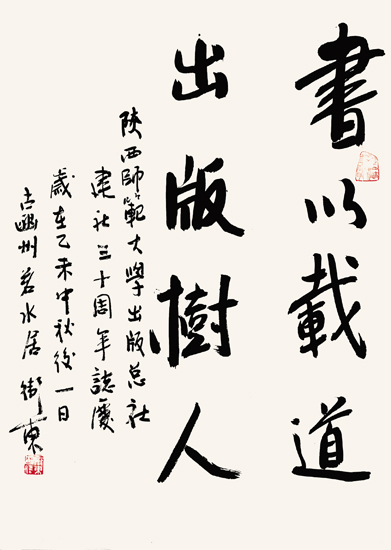 書以載道
出版樹人
陝西師範大學出版总社
建社三十周年誌慶
歲在乙未中秋後一日
古豳州若水居衛東